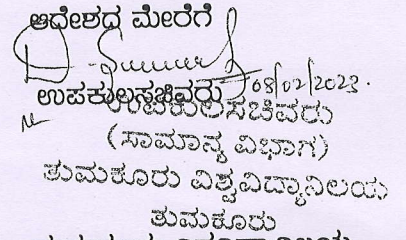 ಆದೇಶದ ಮೇರೆಗೆ
08/02/2023.
ಉಪಕುಲಸಚಿವರು
ಉಪಕುಲಸಚಿವರು
(ಸಾಮಾನ್ಯ ವಿಭಾಗ)
ತುಮಕೂರು ವಿಶ್ವವಿದ್ಯಾನಿಲಯ
ತುಮಕೂರು